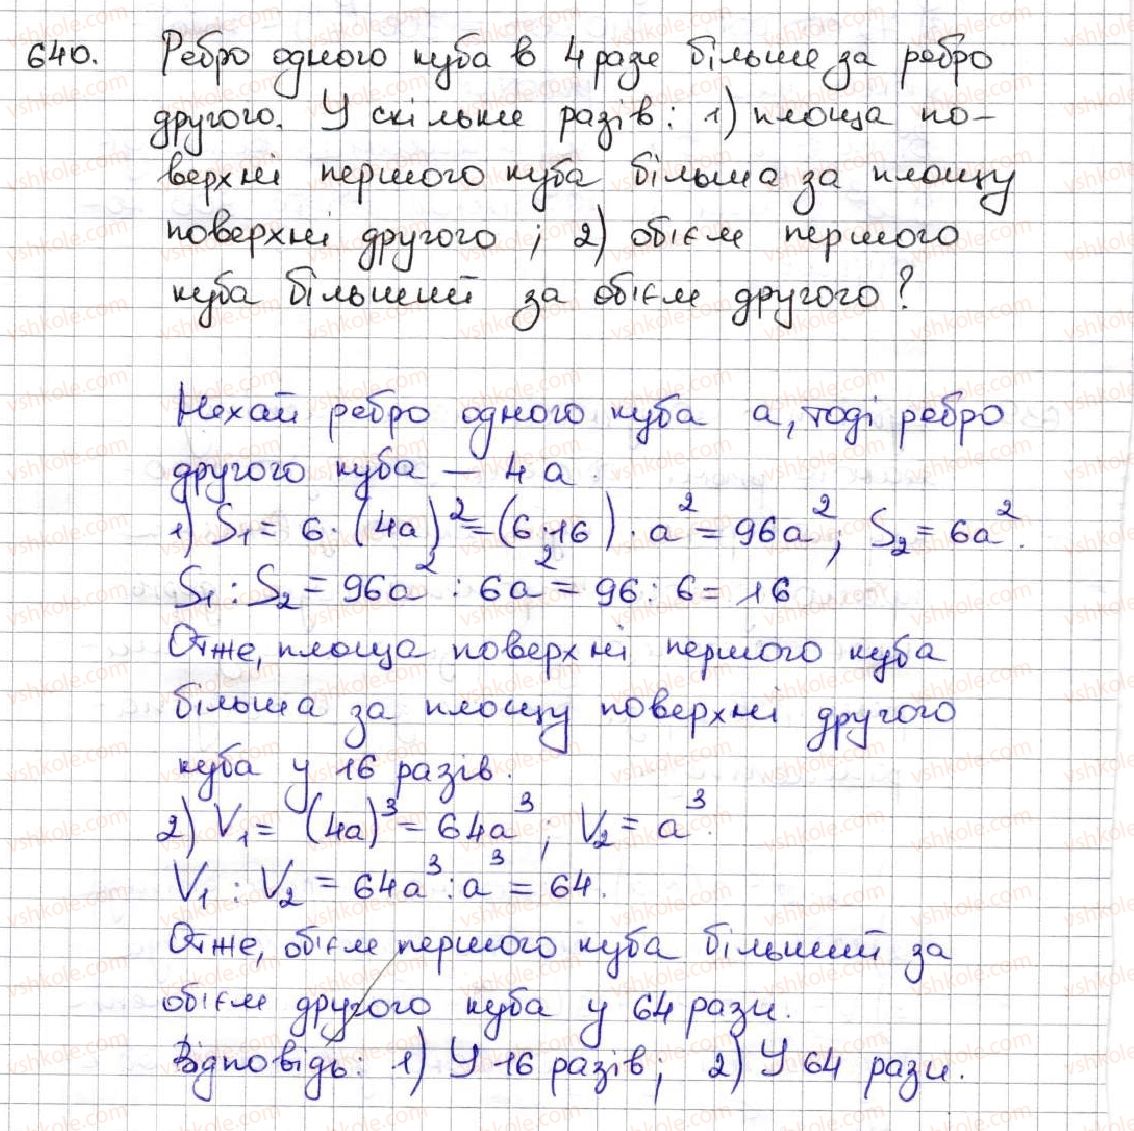 640. Ребро одного куба в 4 рази більше за ребро
другого. У скільки разів: 1) площа по-
верхні першого куба більша за площу
поверхні другого; 2) обієм першого
куба більший за обієм другого?
Нехай ребро одного куба a, тоді ребро
другого куба — 4a.
1) S₁ = 6 · (4a)² = (6·16) · a² = 96a²; S₂ = 6a².
S₁ : S₂ = 96a² : 6a² = 96 : 6 = 16
Отже, площа поверхні першого куба
більша за площу поверхні другого
куба у 16 разів.
2) V₁ = (4a)³ = 64a³; V₂ = a³.
V₁ : V₂ = 64a³ : a³ = 64.
Отже, обієм першого куба більший за
обієм другого куба у 64 рази.
Відповідь: 1) У 16 разів; 2) У 64 рази.